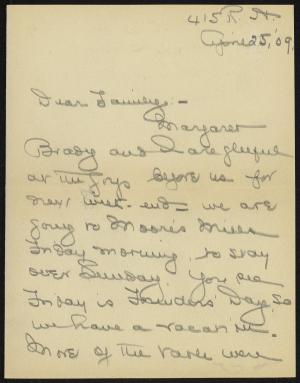 415 R. H.
April 25, '09.
Dear Family: -
Margaret
Brady and I are gleeful
at the joys before us for
next week-end - we are
going to Moores Mills
Friday morning, to stay
over Sunday. You see
Friday is Founders' Day, so
we have a vacation.
More of the were